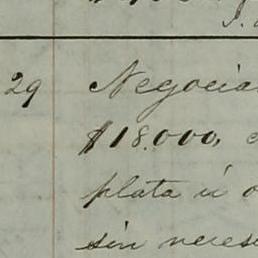 29 Negocia
$18.000, c
plata ú o
sin neces